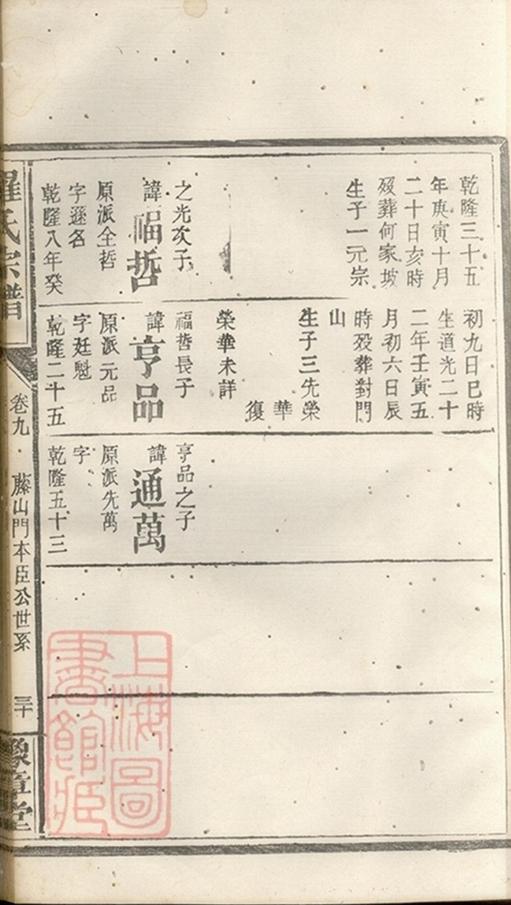 乾隆三十五
年庚寅十月
二十日亥時
歿葬何家坡
生子一元宗
之光次子
諱福哲
原派全哲
字遜名
乾隆八年癸
初九日巳時
生道光二十
二年壬寅五
月初六日辰
時歿葬對門
山
生子三先榮
華
復
榮華未詳
福哲長子
諱亨品
原派元品
字廷魁
乾隆二十五
亨品之子
諱通萬
原派先萬
字
乾隆五十三
羅氏宗譜
卷九
藤山門本臣公世系
三十
豫章堂
上海圖
書館藏